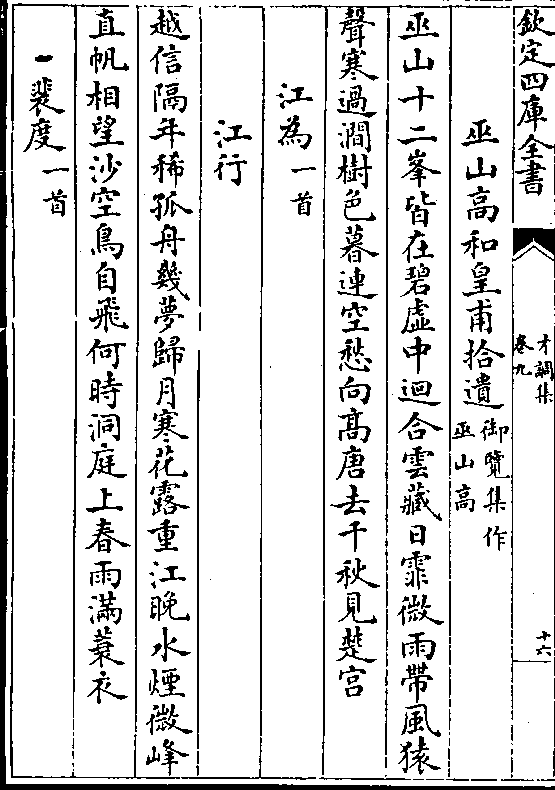 欽定四庫全書
才調集
卷九
十六
巫山高和皇甫拾遺御覽集作巫山高
巫山十二峯皆在碧虛中迴合雲藏日霏微雨帶風猿
聲寒過澗樹色暮連空愁向髙唐去千秋見楚宫
江為一首
江行
越信隔年稀孤舟幾夢歸月寒花露重江晚水煙微峰
直帆相望沙空鳥自飛何時洞庭上春雨滿蓑衣
裴度一首